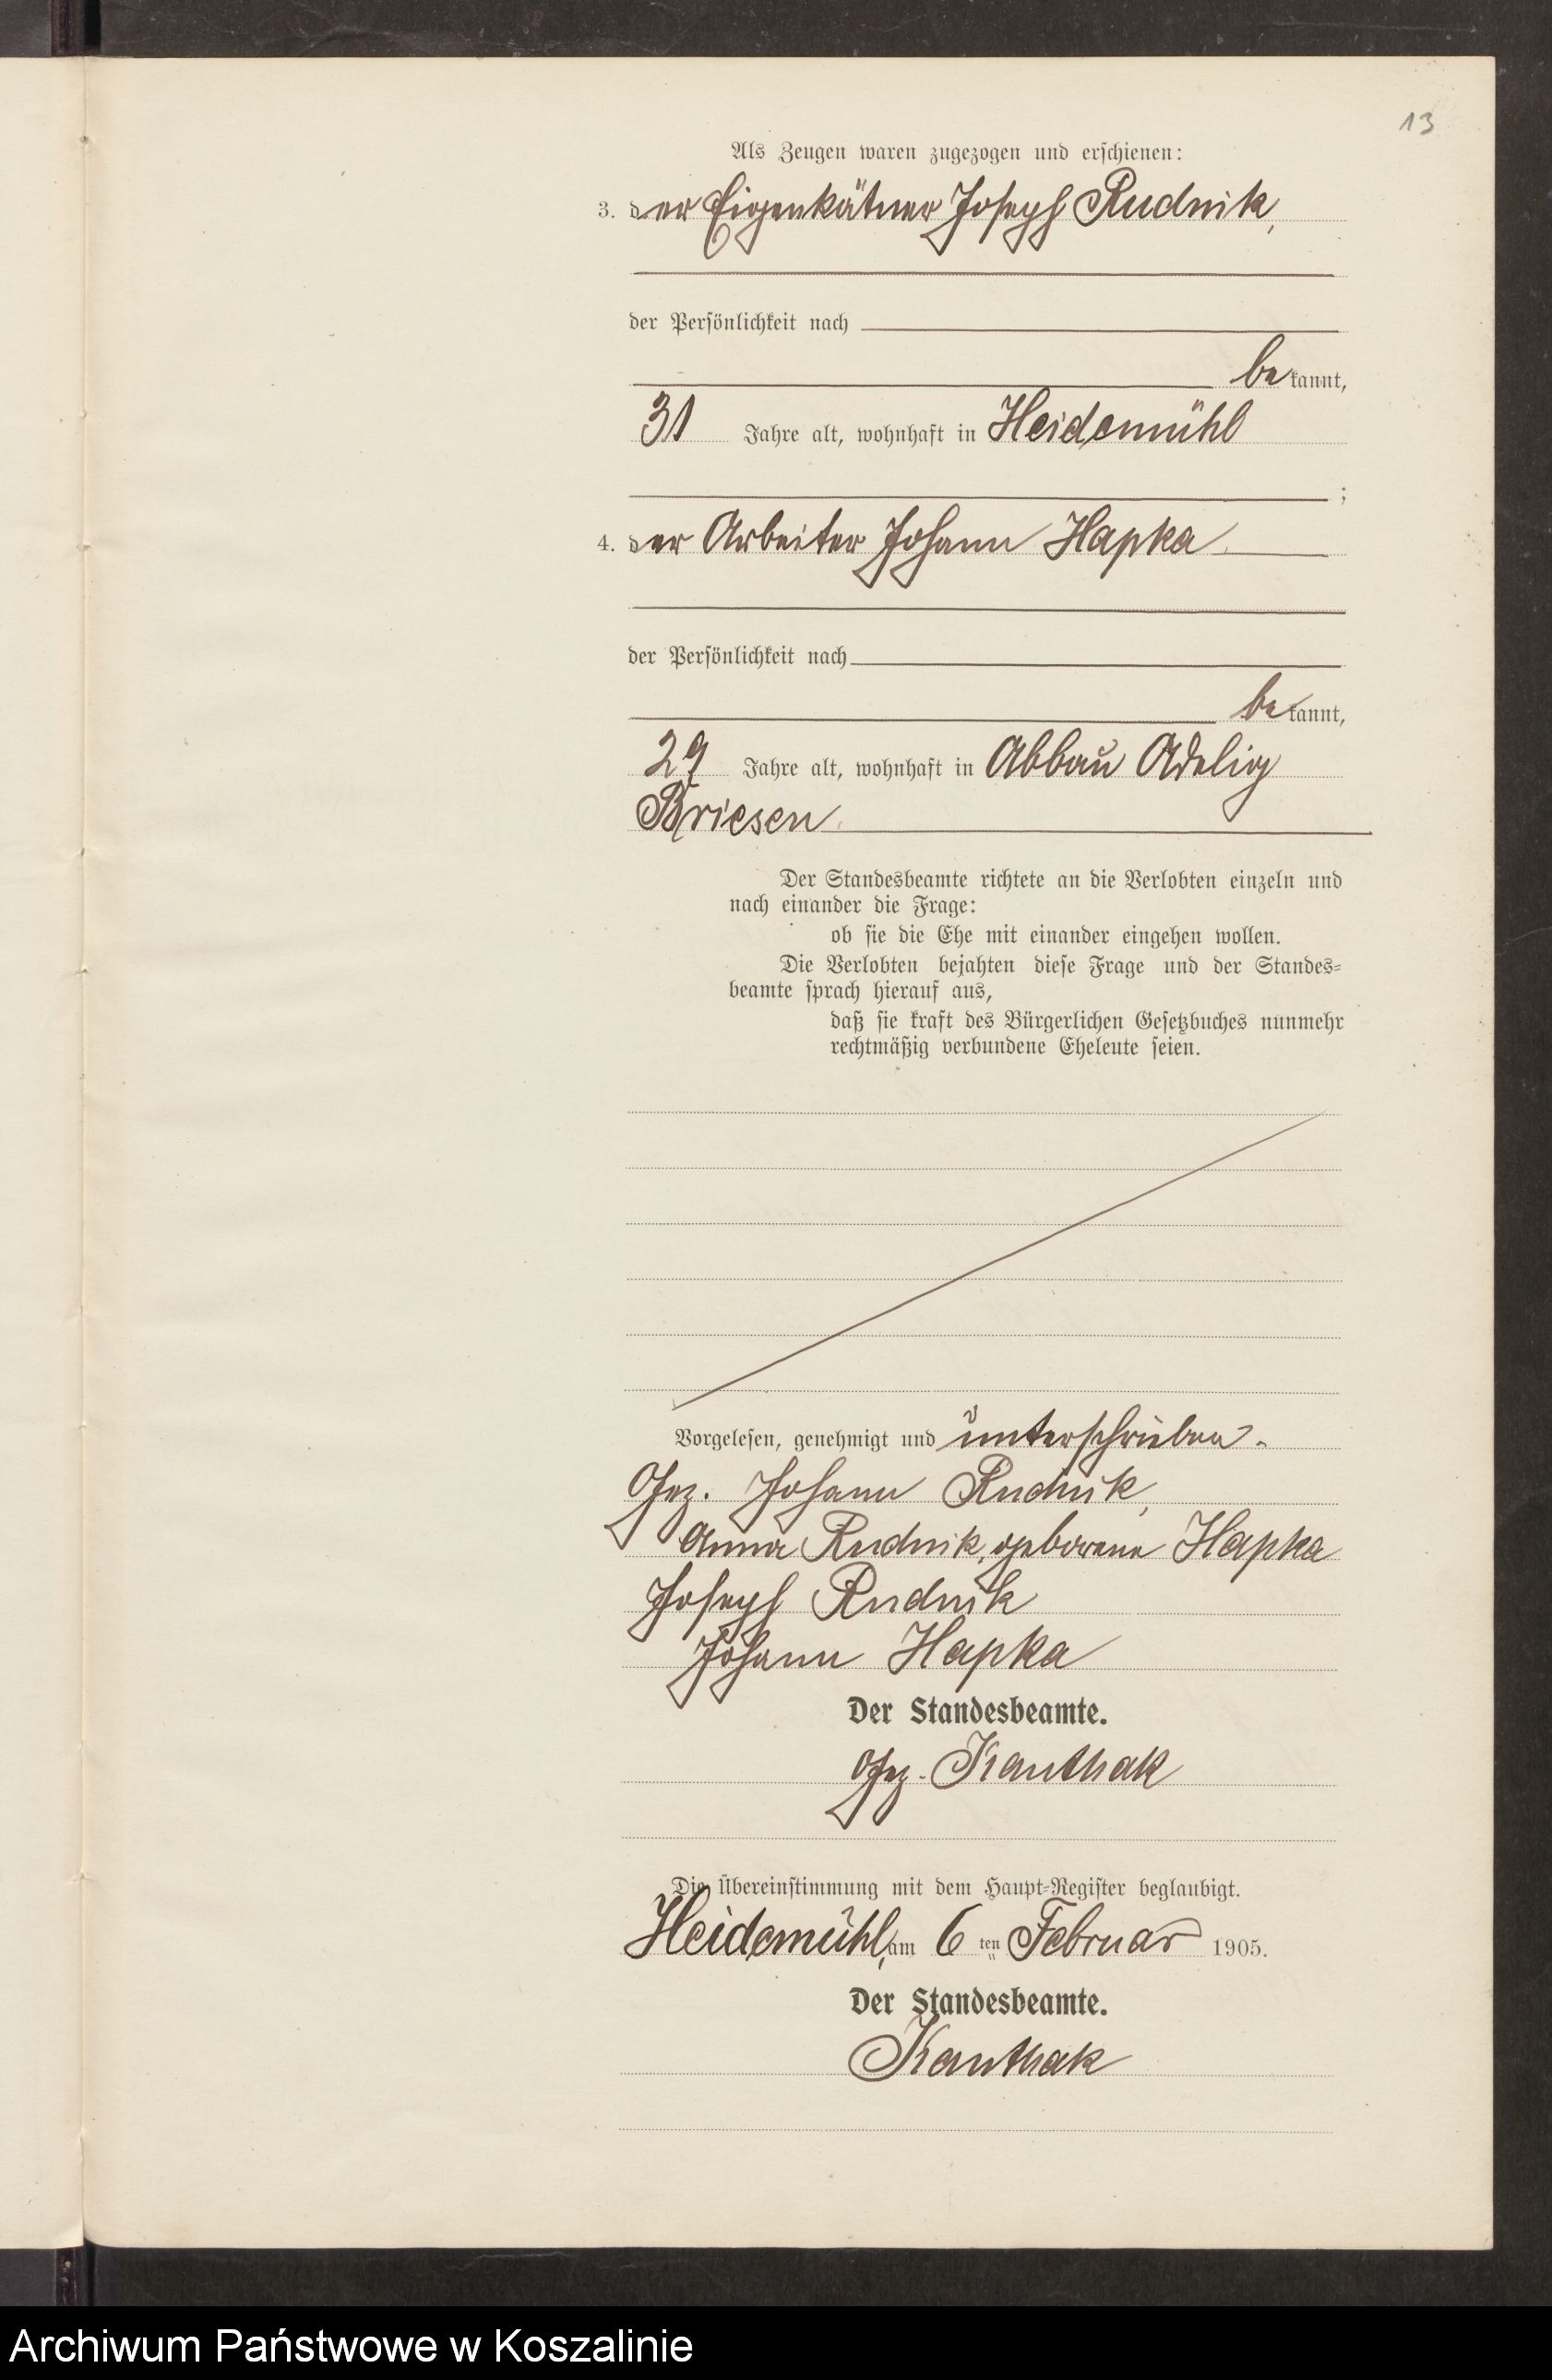 13
Als Zeugen waren zugezogen und erschienen:
3. der Eigenkätner Joseph Rudnik,
der Persönlichkeit nach
bekannt,
31 Jahre alt, wohnhaft in Heidemühl
;
4. der Arbeiter Johann Hapka
der Persönlichkeit nach
bekannt,
29 Jahre alt, wohnhaft in Abbau Adelig
Briesen.
Der Standesbeamte richtete an die Verlobten einzeln und
nach einander die Frage:
ob sie die Ehe mit einander eingehen wollen.
Die Verlobten bejahten diese Frage und der Standes-
beamte sprach hierauf aus,
daß sie kraft des Bürgerlichen Gesetzbuches nunmehr
rechtmäßig verbundene Eheleute seien.
Vorgelesen, genehmigt und unterschrieben.
Gez. Johann Rudnik,
Anna Rudnik, geborene Hapka
Joseph Rudnik
Johann Hapka
Der Standesbeamte.
Gez. Kanthak
Die Übereinstimmung mit dem Haupt-Register beglaubigt.
Heidemühl, am 6ten Februar 1905.
Der Standesbeamte.
Kanthak
Archiwum Państwowe w Koszalinie